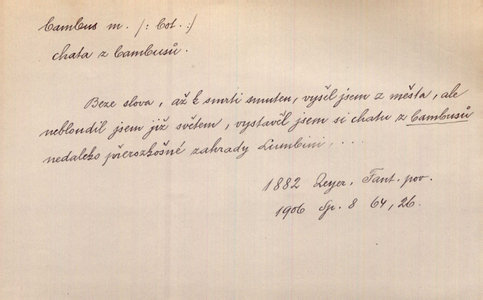 Bambus m. /: bot. :/
chata z bambusů.
Beze slova, až k smrti smuten, vyšel jsem z města, ale
nebloudil jsem již světem, vystavěl jsem si chatu z bambusů
nedaleko přerozkošné zahrady Lumbini, ...
1882 Zeyer, Fant. pov.
1906 Sp. 8 64, 26.